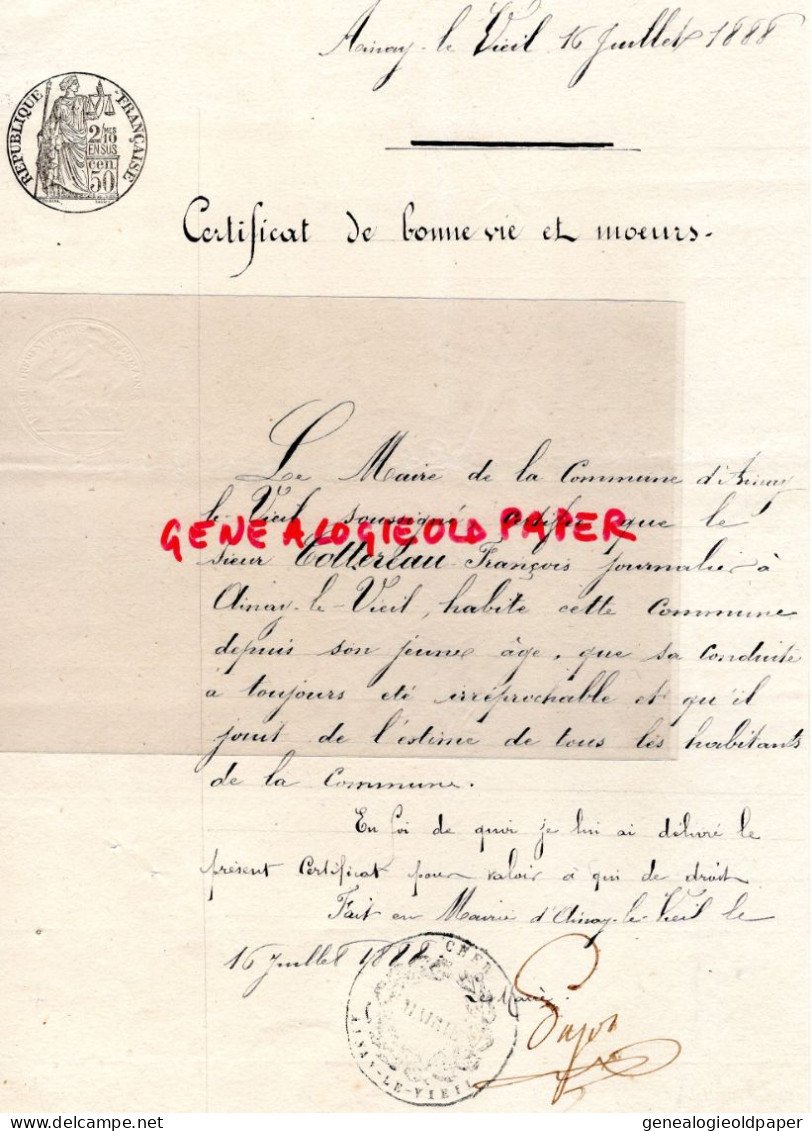 Ainay-le Vieil 16 Juillet 1888
RÉPUBLIQUE FRANÇAISE
2/10
EN SUS
cen.
50
Certificat de bonne vie et moeurs.
Le Maire de la Commune d'Ainay
le-Vieil soussigné certifie que le
GENEALOGIEOLD PAPER
sieur Tottereau François journalier à
Ainay-le-Vieil, habite cette commune
depuis son jeune âge, que sa conduite
a toujours eté irréprochable et qu'il
jouit de l'estime de tous les habitants
de la Commune.
En foi de quoi je lui ai délivré le
présent certificat pour valoir à qui de droit
Fait en Mairie d'Ainay-le-Vieil le
16 Juillet 1888
Le Maire
CHER
MAIRIE
AINAY-LE-VIEIL
genealogieoldpaper